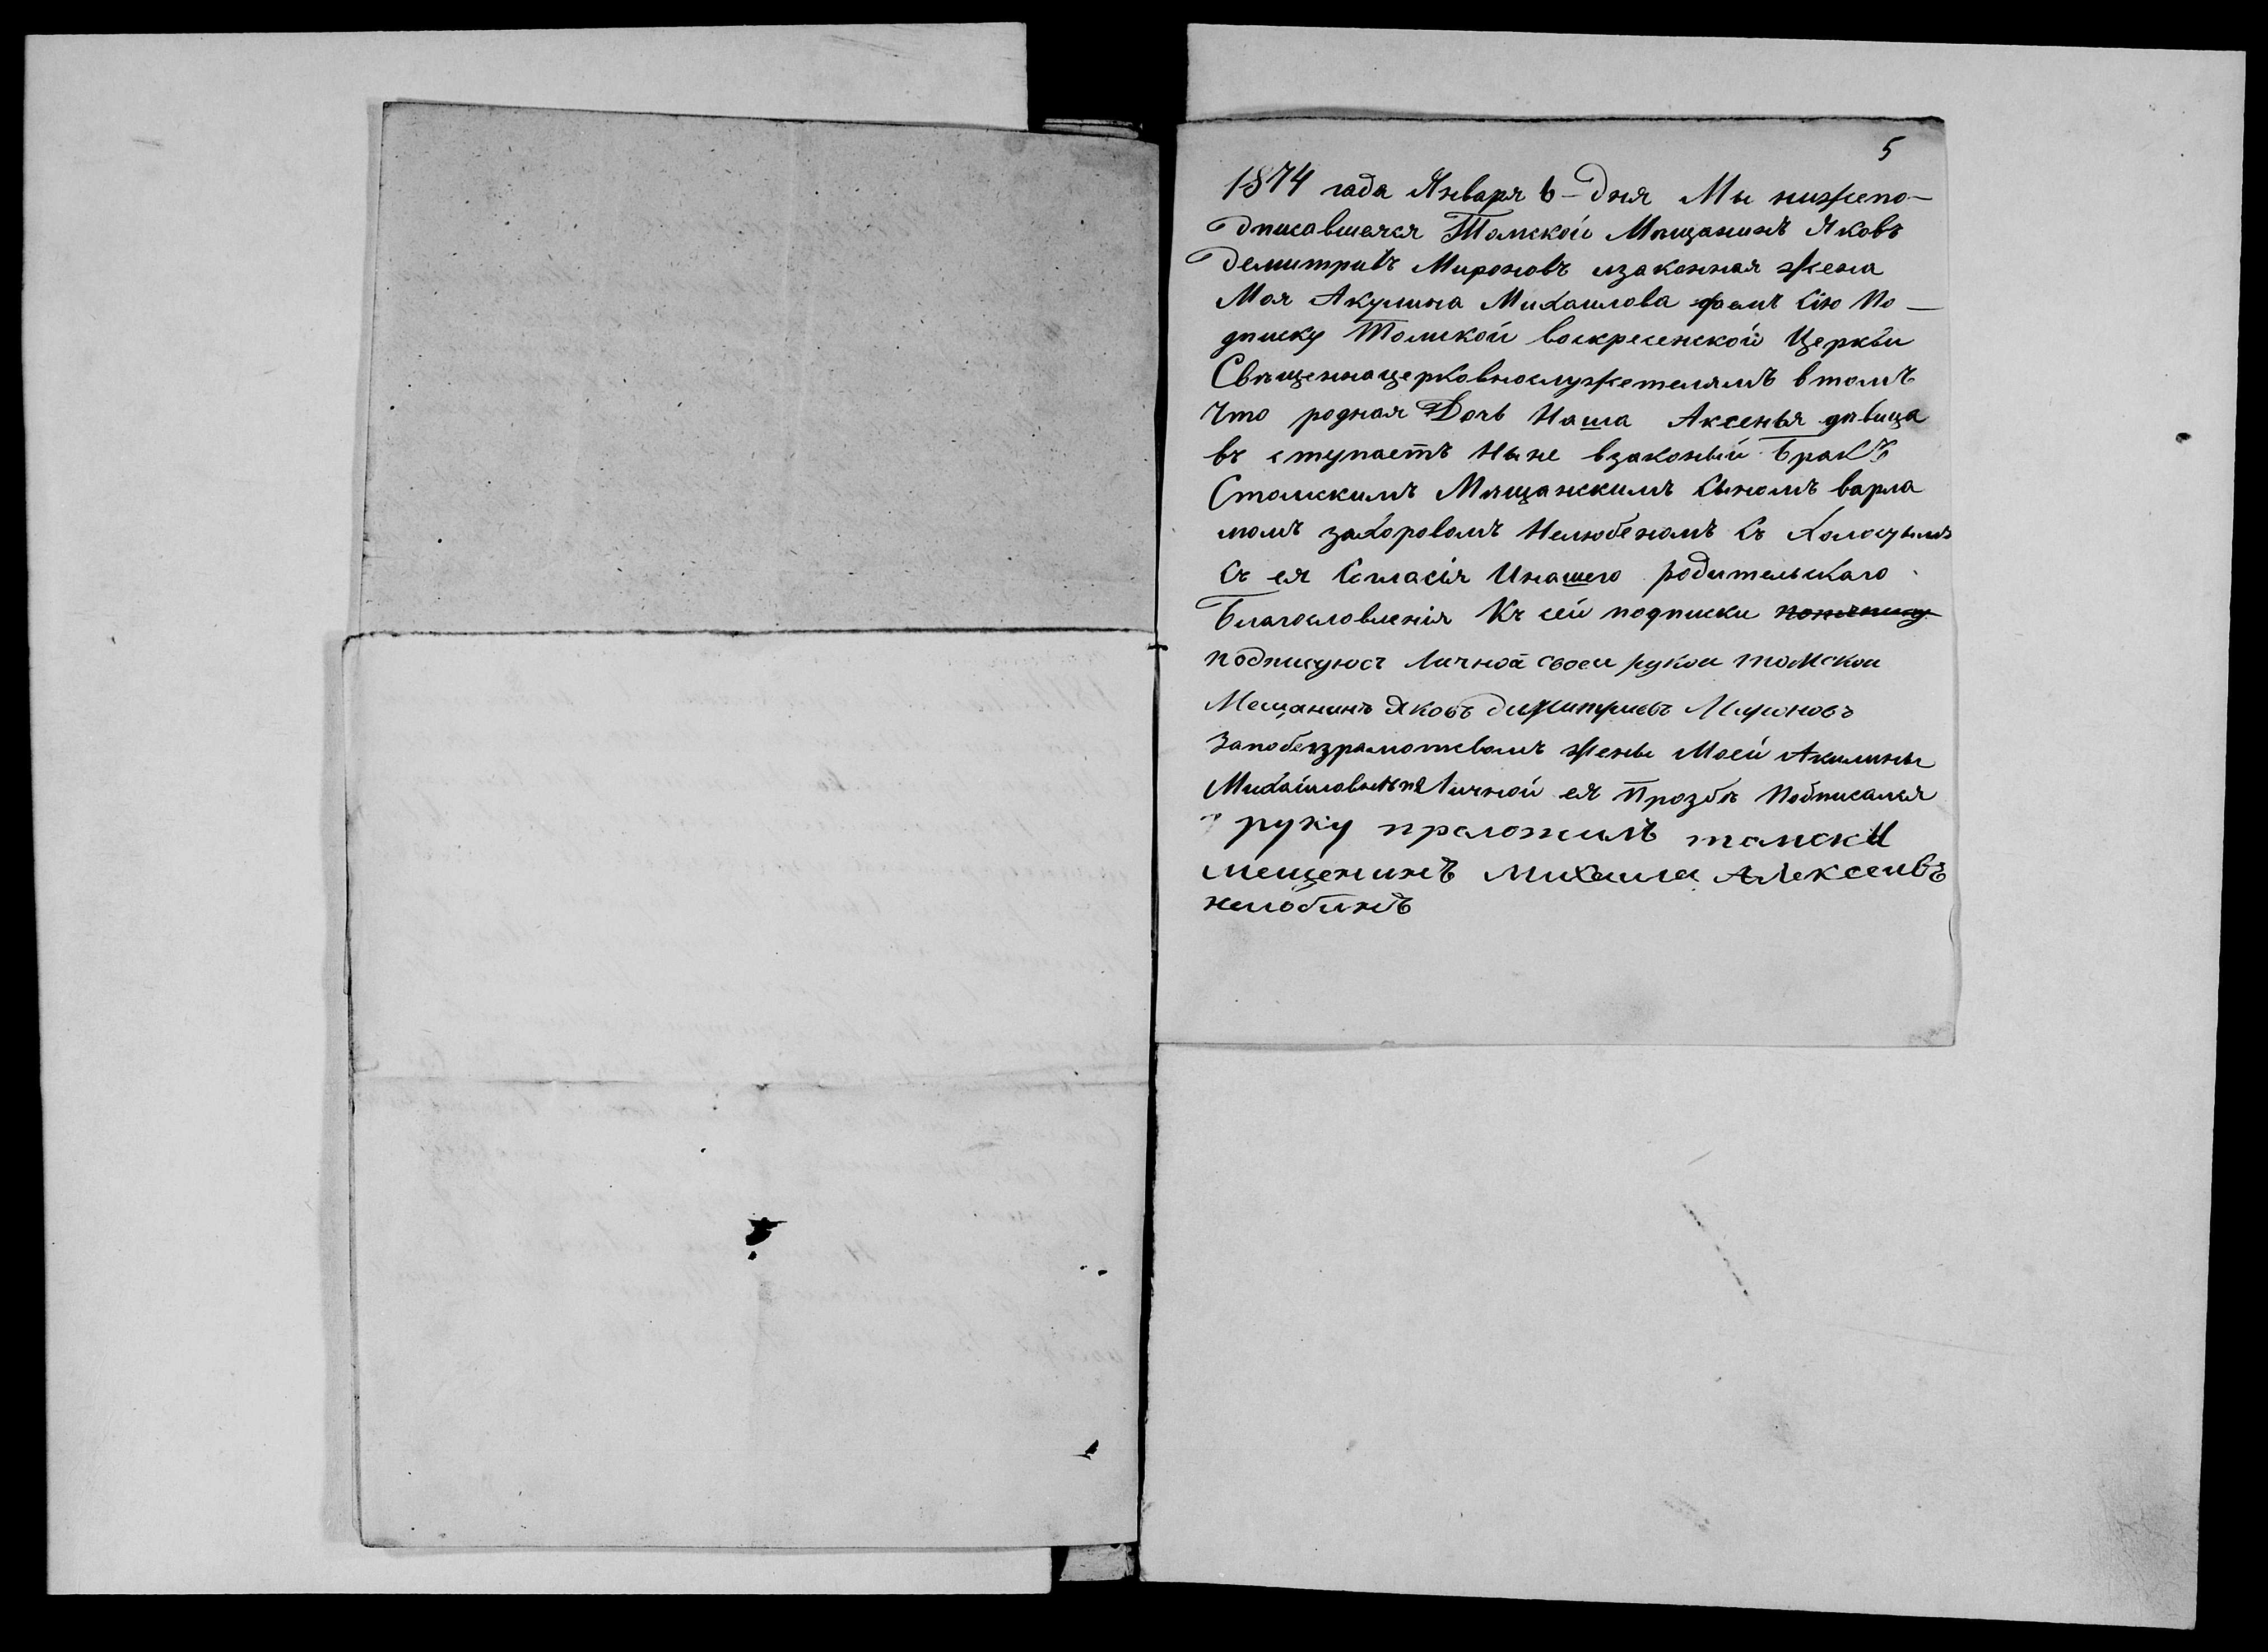 5
1874 года Января 6-Дня Мы нижепо-
дписавшаяся Томской Мѣщанинъ Яковъ
Демитривъ Мироновъ изаконная жена
Моя Акулина Михаилова даемъ Сію По-
дписку Томской воскресенской Церкви
Священнацерковнослужетелямъ втомъ
Что родная Дочь Наша Аксенья дѣвица
въ ступаетъ Ныне взаконый Бракъ
Стомскимъ Мѣщанскимъ Сыномъ варла
момъ захоровомъ Нелюбеномъ Съ Холостымъ
Съ ея Согласія Инашего родительскаго
Благословленія Къ сей подписки
подписуюсъ Личной своеи рукои томскои
Мещанинъ Яковъ димитриевъ Мироновъ
Запобезграмотевомъ жены Моей Акилины
Михайловны по Личной ея Прозбѣ Подписался
руку преложилъ томскы
мещенинъ Михаила Алексеивъ
нелюбинъ